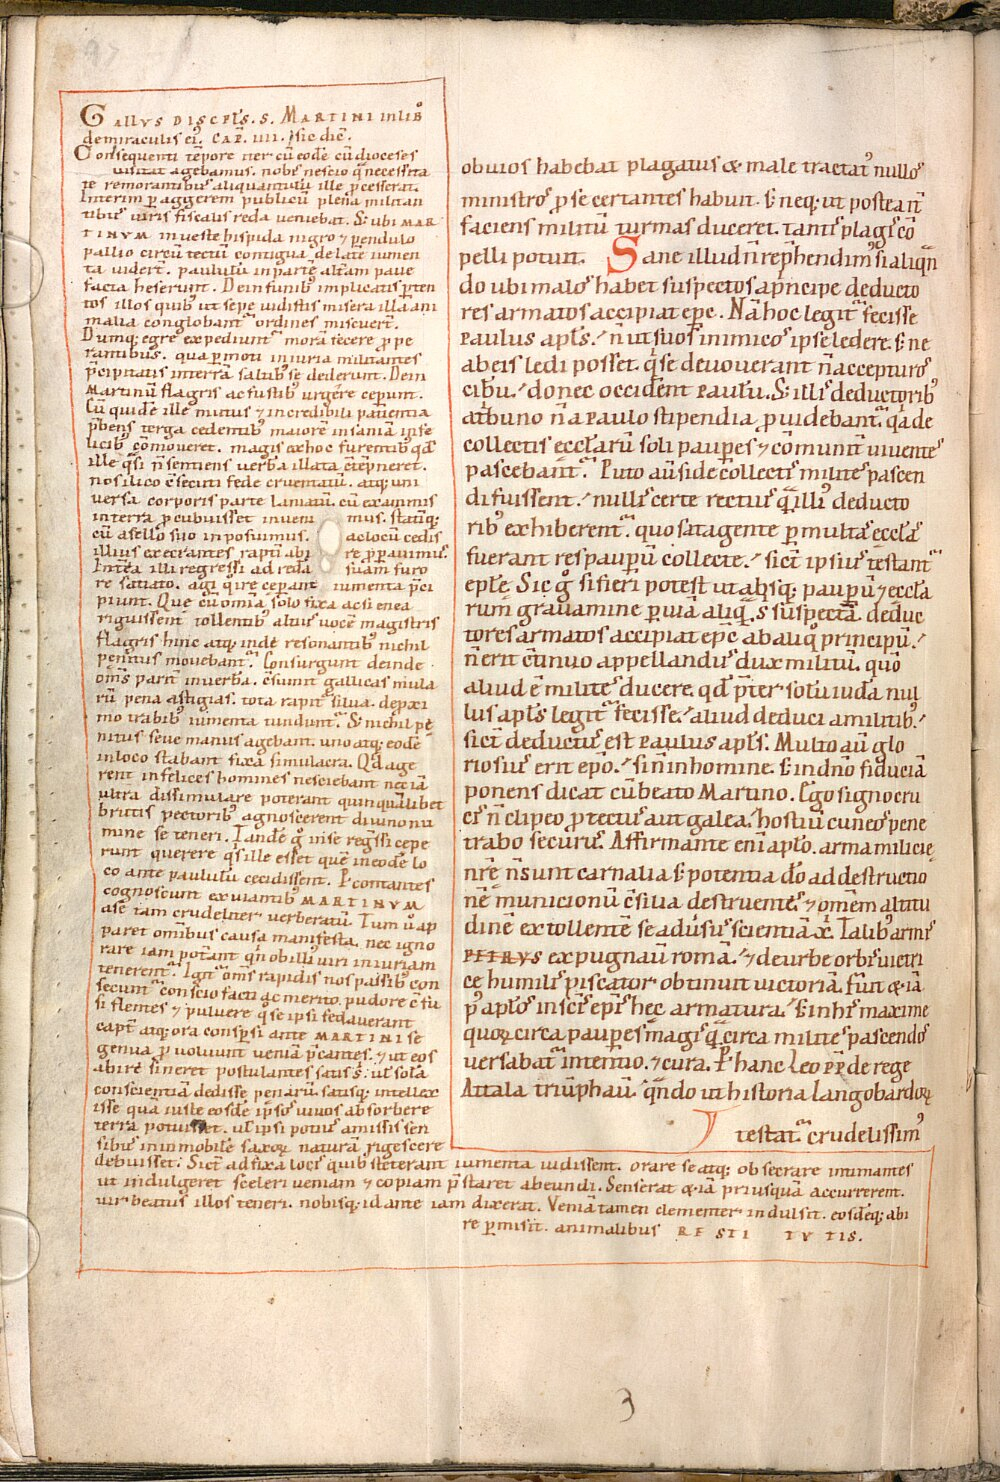 97
Gallus discpl's. s. Martini in lib̊
de miraculis ei'. Cap̄. iiii. sic dic̄.
Consequenti tēpore iter cū eodē cū dioceses
visitat agebamus. nobis nescio q̄ necessita
te remorantibus aliquantulū ille p̄cesserat.
Interim p̄ aggerem publicū plena militan
tibus viris fiscalis reda veniebat. S; ubi MAR
TINUM in veste hispida nigro & pendulo
pallio circū tectū contigua de latē iumen
ta viderī. paululū in partē altām pave
facta heserunt. Dein funibus implicatis p̄ten
tos illos quib' ut sepe vidistis misera illa ani
malia conglobant' ordines miscuerī.
Dumq; egre expediunt' morā fecere p̄pe
rantibus. qua p̄moti iniuria militantes
p̄cipitatis in terrā saltib' se dederunt. Dein
Martinū flagris ac fustib' urgere ceperunt.
Cū quidē ille mutus & incredibili patientia
p̄bens terga cedentibus maiorē insaniā infe
licib' cōmoveret. magis ex hoc furentib' qd'
ille q̄si n̄ sentiens verba illata cōtēpneret.
nos ilico cōsecuti fede cruentatū. atq; uni
versa corporis parte laniatū. cū exanimis
in terra p̄cubuisset inveni mus. statīq;
cū asello suo imposuimus. ac locū cedis
illius execrantes raptī abi re p̄p̄avimus.
Intēa illi regressi ad redā suam furo
re satiato. agi q̊ ire ceperant iumenta p̄ci
piunt. Que cū omīa solo fixa ac si enea
riguissent tollentibus altius vocē magistris
flagris hinc atq; inde resonantib' nichil
penitus movebant'. Consurgunt deinde
om̄s parit' in verba. cōsumit gallicas mula
rū pena astigias. tota rapit' silva. depxi
mo trabib' iumenta tundunt'. S; nichil pe
nitus seve manus agebant. uno atq; eodē
in loco stabant fixa simulacra. Qd age
rent infelices homines nesciebant nec iā
ultra dissimulare poterant quin quālibet
brutis pectoribus agnoscerent divino nu
mine se teneri. Tandē g̊ in se reg̃ssi cepe
runt querere q̊s ille esset quē in eodē lo
co ante paululū cecidissent. Pcontantes
cognoscunt ex viantib' MARTINUM
a se tam crudeliter verberatū. Tum v̊ ap
paret omībus causa manifesta. nec igno
rare iam potant qn ob illi' viri iniuriam
tenerent'. Igit' om̄s rapidis nos passibus con
secunt' conscio facti ac merito. pudore cōfu
si flentes & pulvere q̊ se ipsi fedaverant
capīt atq; ora conspersi ante MARTINI se
genua p̄volvunt veniā p̄cantes. & ut eos
abire sineret postulantes satis s;. vel solā
conscientiā dedisse penarū. satisq; intellex
isse quā iuste eosdē ipsos vivos absorbere
terra potuisset. vel ipsi potius amissis sen
sibus in inmobilē saxor naturā rigescere
debuisset. Sict ad fixa locis quib' steterant iumenta vidissent. orare se atq; obsecrare intimantes
ut indulgeret sceleri veniam & copiam p̄staret abeundi. Senserat & iā priusquā accurrerent.
vir beatus illos teneri. nobisq; id ante iam dixerat. Veniā tamen clementer indulsit. eosdēq; abi
re p̄misit. animalibus RESTI TUTIS.
obvios habebat plagatus & male tractat' nullos
ministros p̄ se certantes habuit. s; neq; ut postea n̄
faciens militū turmas duceret. tantis plagis cō
pelli potuit. Sane illud n̄ rep̄hendim' si aliqn̄
do ubi malos habet suspectos a p̄ncipe deducto
res armatos accipiat ep̄c. Nā hoc legit' fecisse
Paulus apl's. n̄ ut suos inimicos ipse ledere. s; ne
ab eis ledi posset. q̊ se devoverant n̄ accepturos
cibū. donec occiderent Paulū. S; illis deductorib'
a tribuno n̄ a Paulo stipendia p̄videbant'. q̄a de
collectis eccl'arū soli paup̄es & cōmunit' viventes
pascebant'. Puto aū si de collectis milites pascen
di fuissent. nullis certe rectius q̄ illis deducto
ribus exhiberent'. quo satagente p̄ multas eccl'as
fuerant res paup̄um collecte. sict ipsius testant'
ep̄le. Sic g̊ si fieri potest ut absq; paup̄um & eccl'a
rum gravamine p̄ viā aliq̄. s; suspectā. deduc
tores armatos accipiat ep̄c ab aliq̊ principū.
n̄ erit cōtinuo appellandus dux militū. quō
aliud ē milites ducere. qd p̄ter solū iudā nul
lus apl's legit' fecisse. aliud deduci a militib'.
sict deductus est Paulus apl's. Multo aū glo
riosius erit ep̄o. si n̄ in homine. s; in dn̄o fiduciā
ponens dicat cū beato Martino. Ego signo cru
cis n̄ clipeo p̄tectus aut galea. hostiū cuneos pene
trabo securus. Affirmante enī apl'o. arma milicię
nr̄ę n̄ sunt carnalia s; potentia dō ad destructio
nē municionū cōsilia destruentes & omēm altitu
dinē extollentē se adūsus scientiā x̄i. Talibus armis
PETRUS expugnavit romā. & de urbe orbis victri
ce humilis piscator obtinuit victoriā. Fūit & iā
p̄ apl'os in sc̄is ep̄is hęc armatura. s; in his maxime
quor circa paup̄es magis q̄ circa milites pascendos
versabat' intentio. & cura. P hanc Leo pp̄ de rege
Attala triūphavit. q̄ndo ut historia Langobardor
testat' crudelissim'
3